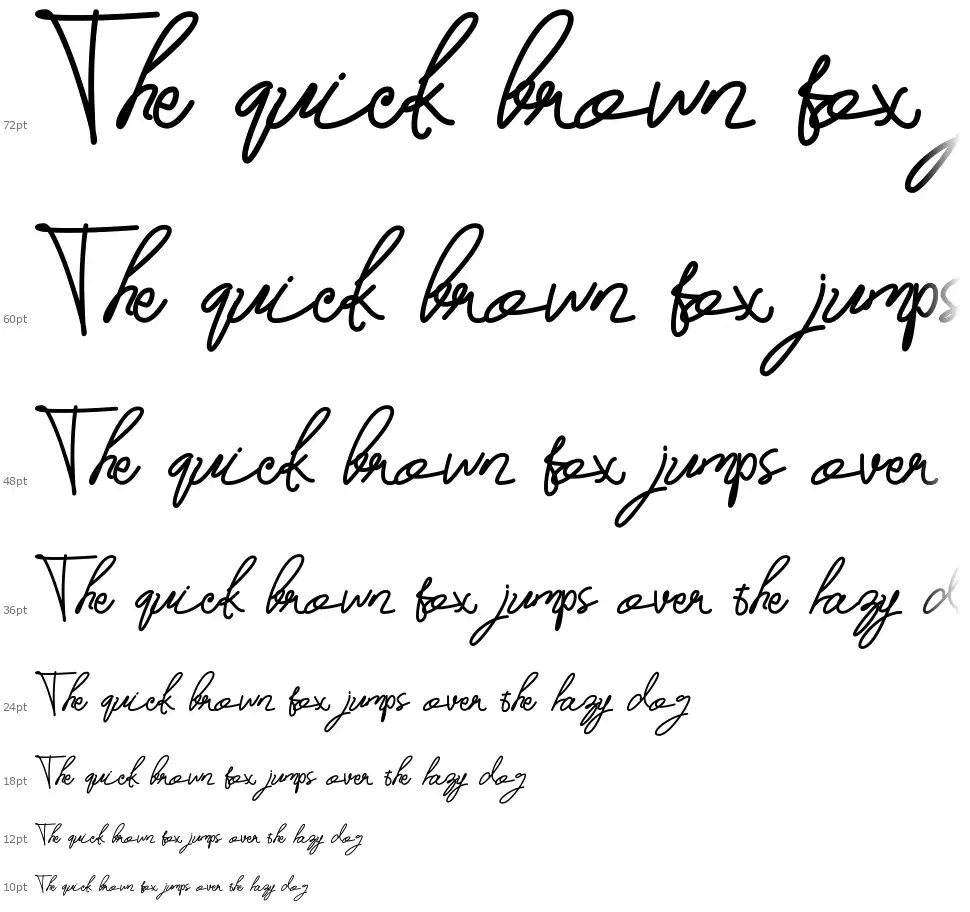 72pt The quick brown fox
60pt The quick brown fox jumps
48pt The quick brown fox jumps over
36pt The quick brown fox jumps over the lazy d
24pt The quick brown fox jumps over the lazy dog
18pt The quick brown fox jumps over the lazy dog
12pt The quick brown fox jumps over the lazy dog
10pt The quick brown fox jumps over the lazy dog